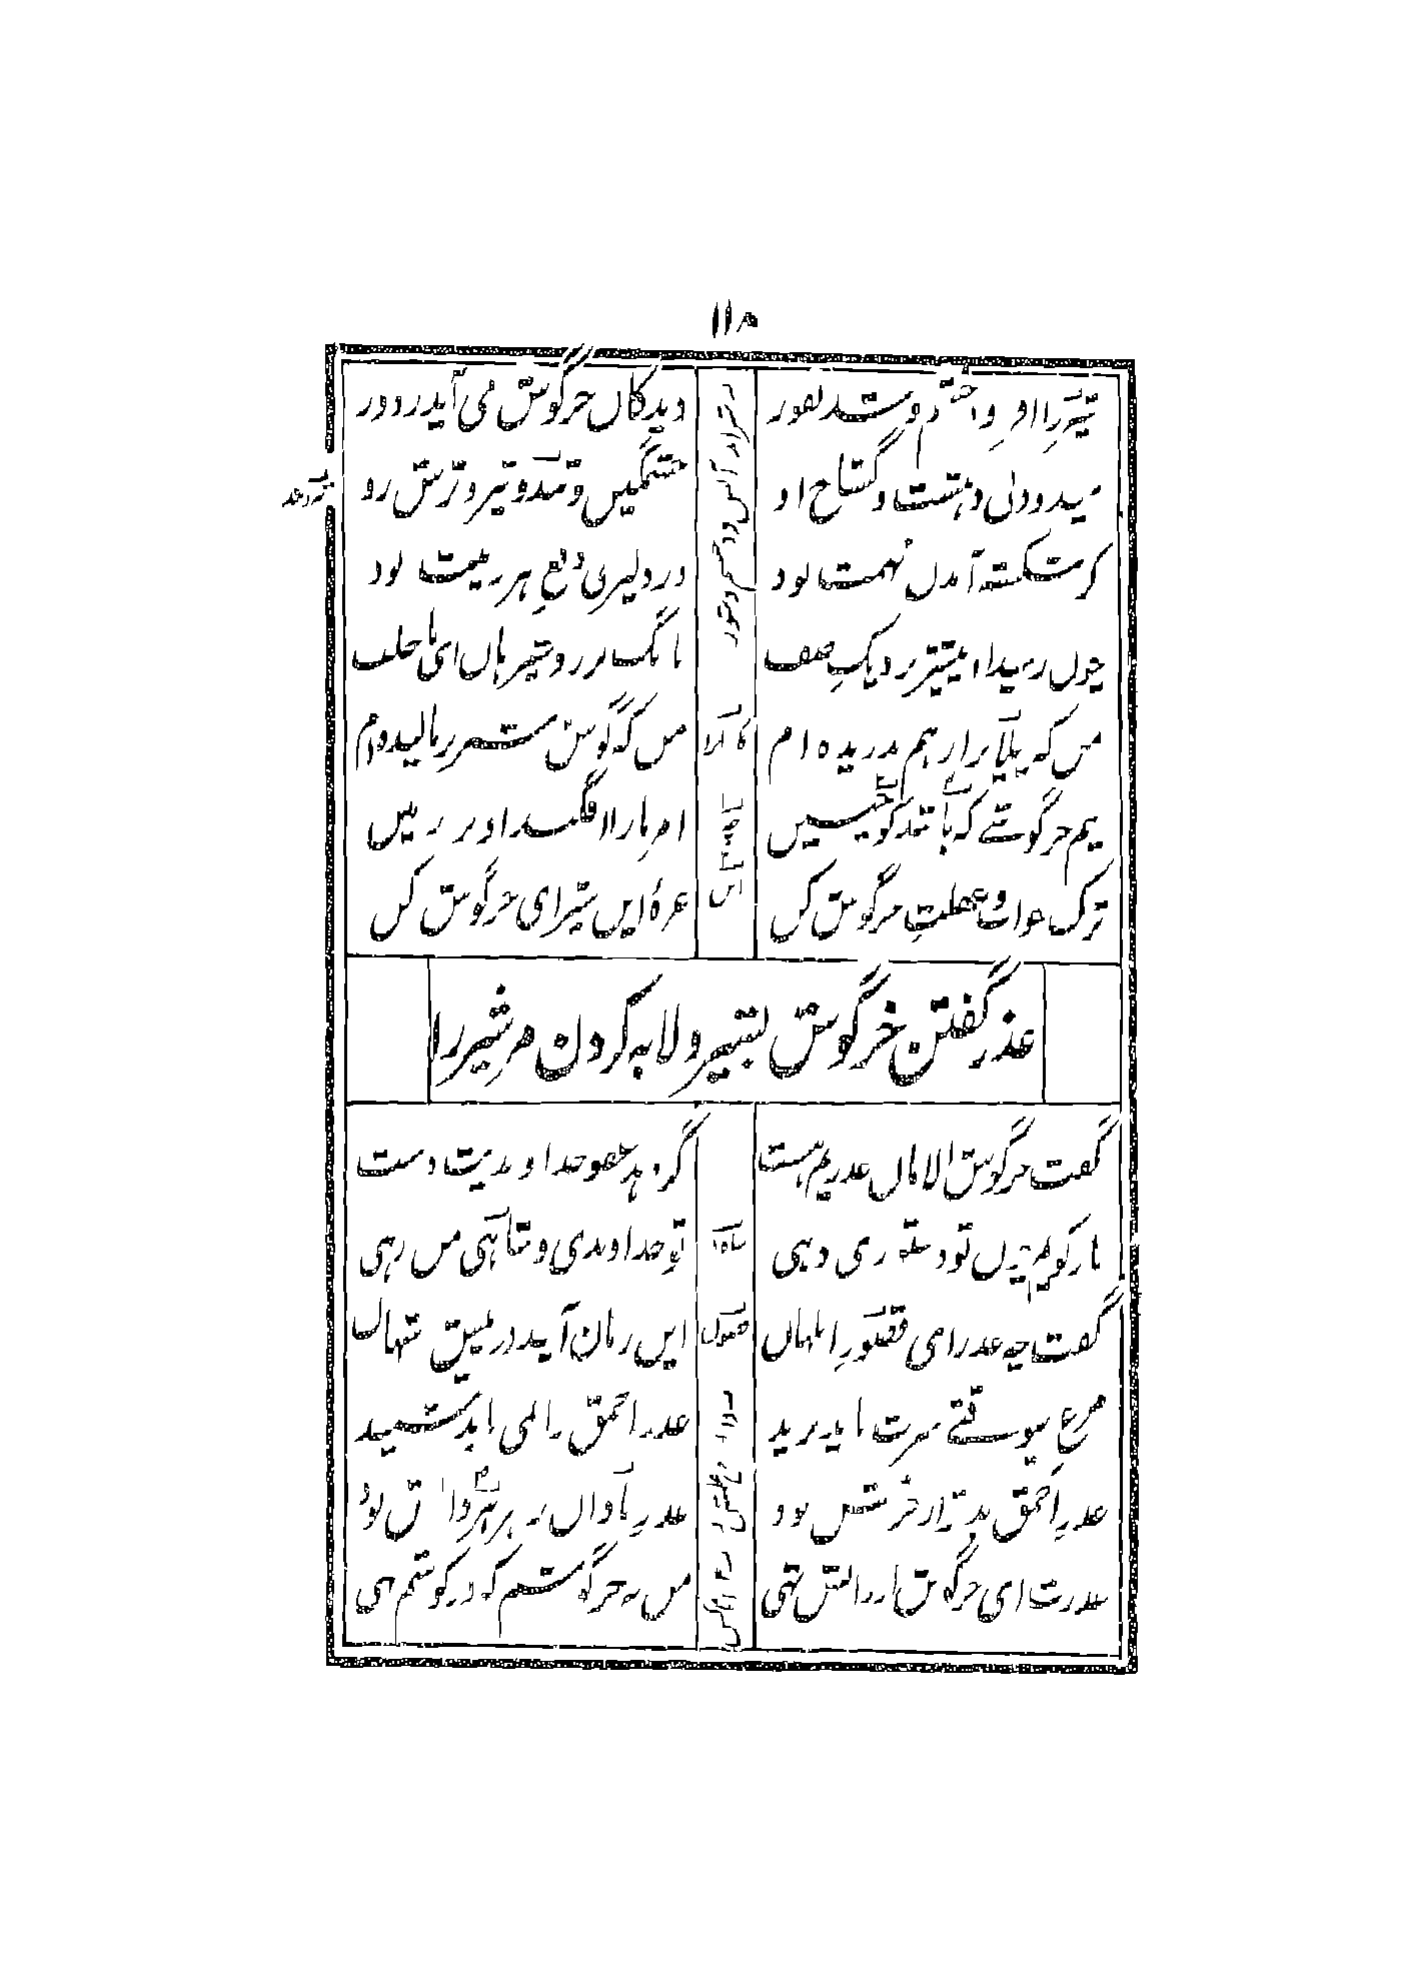 ۱۱۵
شیر را افزود خشم و شد نفور
دید کان خرگوش می آید ز دور
میدود بی دهشت و گستاخ او
خشمگین و تند و تیز و ترش رو
کز شکسته آمدن تهمت بود
در دلیری دفع هر ریبت بود
چون رسید او پیشتر نزدیک صف
بانگ بر زد شیر هان ای ناخلف
من که پیلان را ز هم بدریده ام
من که گوش شیر نر مالیده ام
نیم خرگوشے که باشد کو چنین
امر ما را افگند او بر زمین
ترک خواب و غفلت خرگوش کن
غرهٔ این شیر ای خرگوش کن
عذر گفتن خرگوش بشیر و لابه کردن مر شیر را
گفت خرگوش الامان عذریم هست
گر دهد عفو خداوندیت دست
باز گویم چون تو دستوری دهی
تو خداوندی و شاهی من رهی
گفت چه عذر ای قصور ابلهان
این زمان آیند در پیش شهان
مرغ بیوقتے سرت باید برید
عذر احمق را نمی باید شنید
عذر احمق بدتر از جرمش بود
عذر نادان زهر هر دانش بود
عذرت ای خرگوش از دانش تهی
من نه خرگوشم که در گوشم نهی